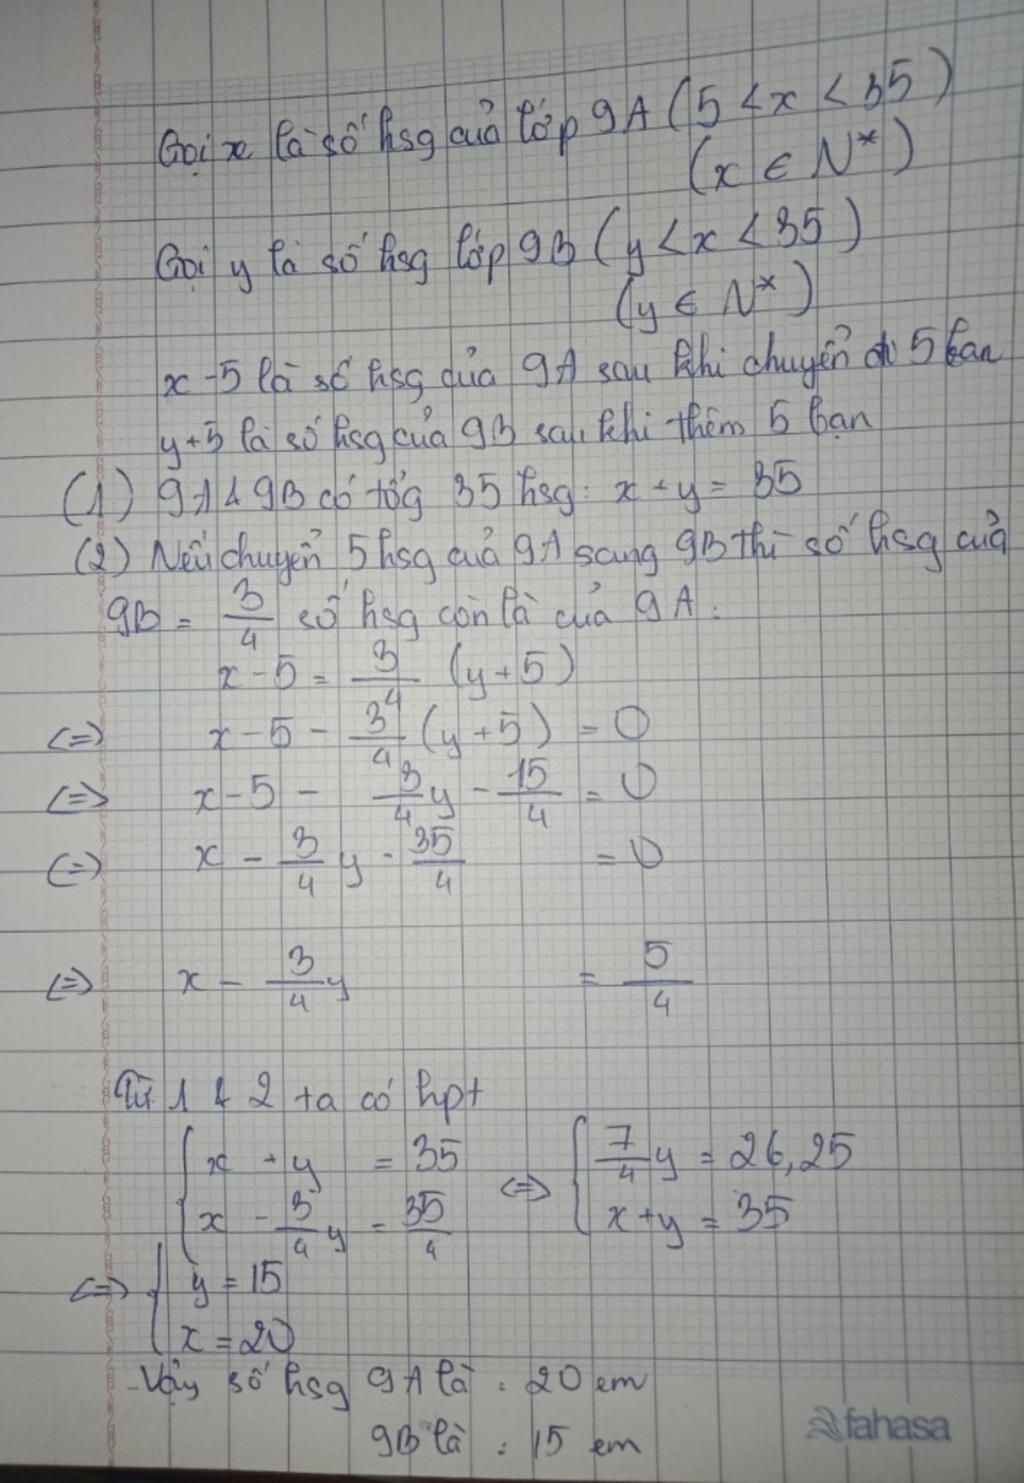 Gọi x là số hsg của lớp 9A (5 < x < 35)
(x ∈ N*)
Gọi y là số hsg lớp 9B (y < x < 35)
(y ∈ N*)
x - 5 là số hsg của 9A sau khi chuyển đi 5 bạn
y + 5 là số hsg của 9B sau khi thêm 5 bạn
(1) 9A & 9B có tổg 35 hsg: x + y = 35
(2) Nếu chuyển 5 hsg của 9A sang 9B thì số hsg của
9B = 3/4 số hsg còn là của 9A:
x - 5 = 3/4 (y + 5)
<=> x - 5 - 3/4 (y + 5) = 0
<=> x - 5 - 3/4 y - 15/4 = 0
<=> x - 3/4 y - 35/4 = 0
<=> x - 3/4 y = 5/4
Từ 1 & 2 ta có hpt
{ x + y = 35 <=> { 7/4 y = 26,25
x - 3/4 y = 35/4 x + y = 35
<=> { y = 15
x = 20
- Vậy số hsg 9A là : 20 em
9B là : 15 em
fahasa